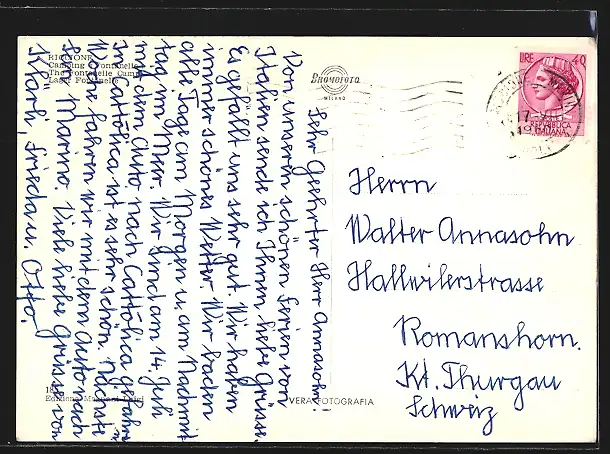 RICCIONE
Camping Fontanelle
The Fontanelle Camp
Lager Fontanelle
BROMOFOTO
MILANO
LIRE 40
REPUBBLICA
ITALIANA
17-VII
Sehr Geehrter Herr Annasohn!
Von unseren schönen Ferien von
Italien sende ich Ihnen, liebe Grüsse.
Es gefällt uns sehr gut. Wir haben
immer schönes Wetter Wir baden
alle Tage am Morgen u. am Nachmit
tag im Meer. Wir sind am 14. Juli
mit dem Auto nach Cattolica gefahren
In Cattolica ist es sehr schön. Nächste
Woche fahren wir mit dem Auto nach
San Marino. Viele liebe Grüsse von
Frieda u. Otto.
Herrn
Walter Annasohn
Hallwilerstrasse
Romanshorn.
Kt. Thurgau
Schweiz
VERA FOTOGRAFIA